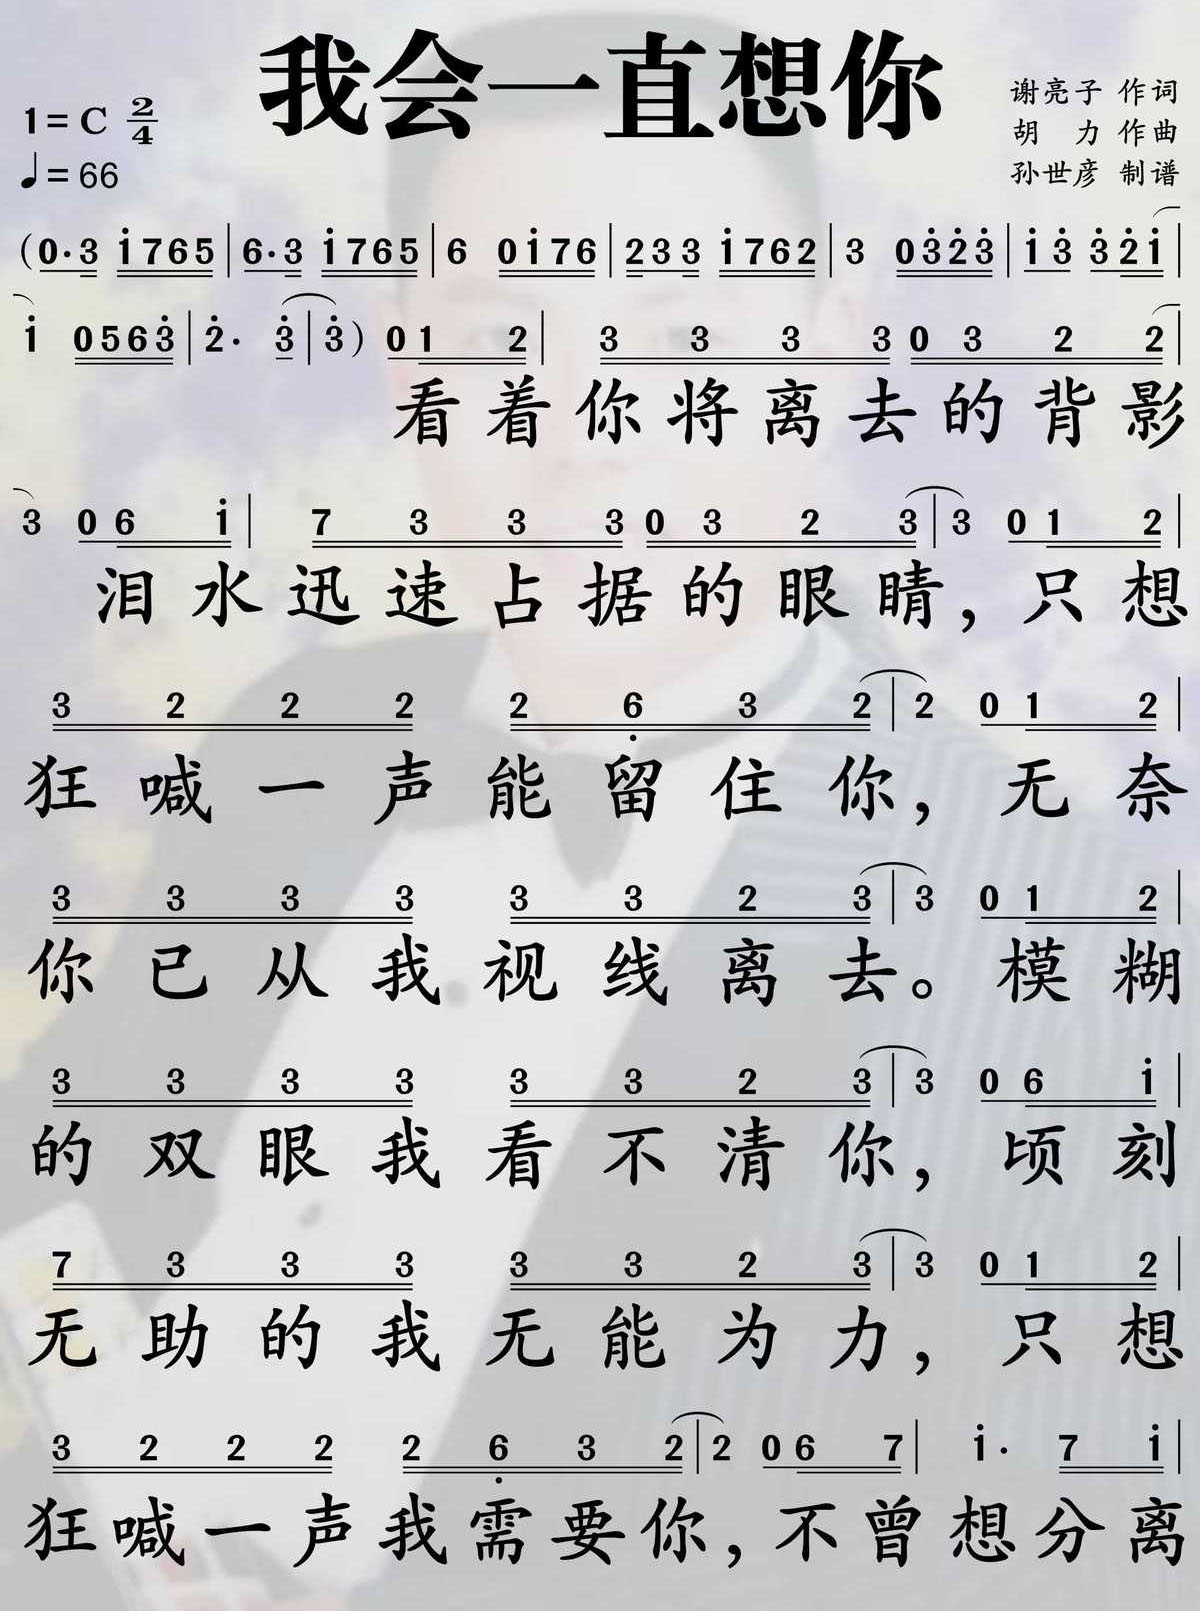 我会一直想你
1=C 2/4
♩=66
谢亮子 作词
胡 力 作曲
孙世彦 制谱
(0·3 i765|6·3 i765|6 0i76|233 i762|3 03̇2̇3̇|i3̇ 3̇2̇i|
i 0563̇|2̇· 3̇|3̇) 01 2| 3 3 3 3 0 3 2 2|
看着你将离去的背影
3 06 i| 7 3 3 3 0 3 2 3|3 01 2|
泪水迅速占据的眼睛，只想
3 2 2 2 2 6̣ 3 2|2 01 2|
狂喊一声能留住你，无奈
3 3 3 3 3 3 2 3|3 01 2|
你已从我视线离去。模糊
3 3 3 3 3 3 2 3|3 06 i|
的双眼我看不清你，顷刻
7 3 3 3 3 3 2 3|3 01 2|
无助的我无能为力，只想
3 2 2 2 2 6̣ 3 2|2 06 7| i· 7 i|
狂喊一声我需要你，不曾想分离